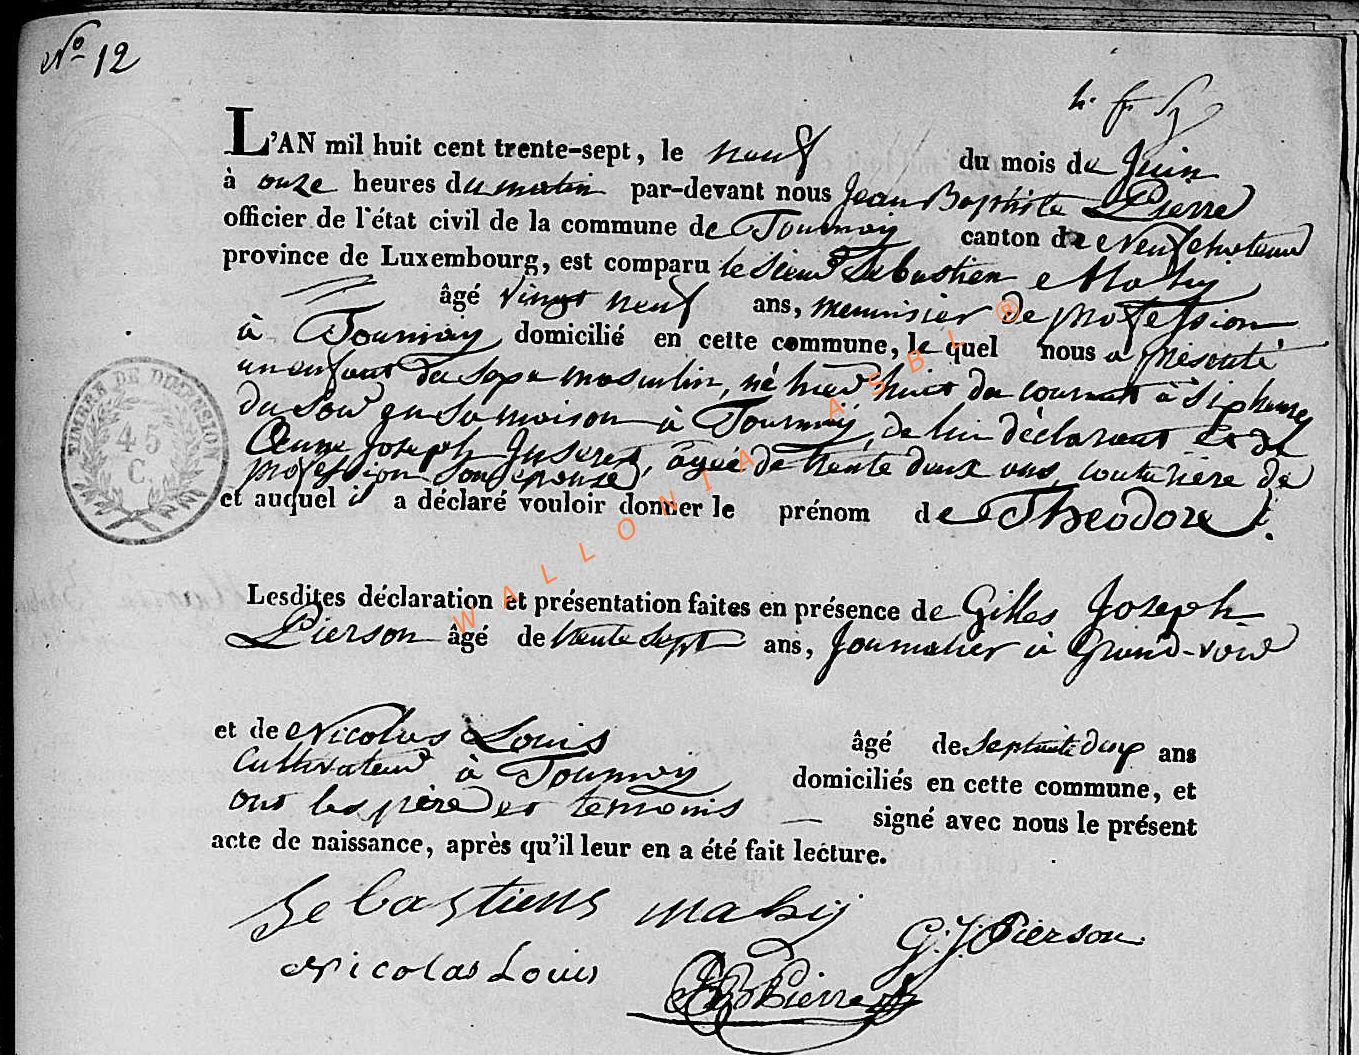 N° 12
L'AN mil huit cent trente-sept, le neuf du mois de Juin
à onze heures du matin par-devant nous Jean Baptiste Pierre
officier de l'état civil de la commune de Tournay canton de Neufchateau
province de Luxembourg, est comparu le Sieur Sebastien Mahy
âgé vingt neuf ans, menuisier de profession
à Tournay domicilié en cette commune, le quel nous a présenté
un enfant du sexe masculin, né hier huit du courant à six heures
du soir en sa maison à Tournay, de lui déclarant et de
Joseph, âgée de trente deux ans, couturière de
profession son épouse,
et auquel il a déclaré vouloir donner le prénom de Théodore.
Lesdites déclaration et présentation faites en présence de Gilles Joseph
Pierson âgé de trente sept ans, Journalier à Grand-voir
et de Nicolas Louis âgé de septante deux ans
Cultivateur à Tournay domiciliés en cette commune, et
ont les père et temoins signé avec nous le présent
acte de naissance, après qu'il leur en a été fait lecture.
Sebastiens mahij
G.J. Pierson
Nicolas Louis
JB Pierre
TIMBRE DE DIMENSION
45
C.
WALLONIA ASBL ®